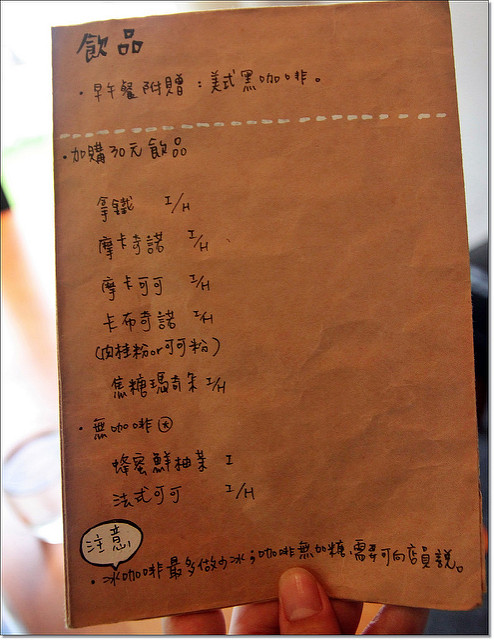 飲品
・早午餐附贈：美式黑咖啡。
・加購30元飲品
拿鐵 I/H
摩卡奇諾 I/H
摩卡可可 I/H
卡布奇諾 I/H
(肉桂粉or可可粉)
焦糖瑪奇朵 I/H
・無咖啡
蜂蜜鮮柚茶 I
法式可可 I/H
注意
・冰咖啡最多做少冰；咖啡無加糖，需要可向店員說。